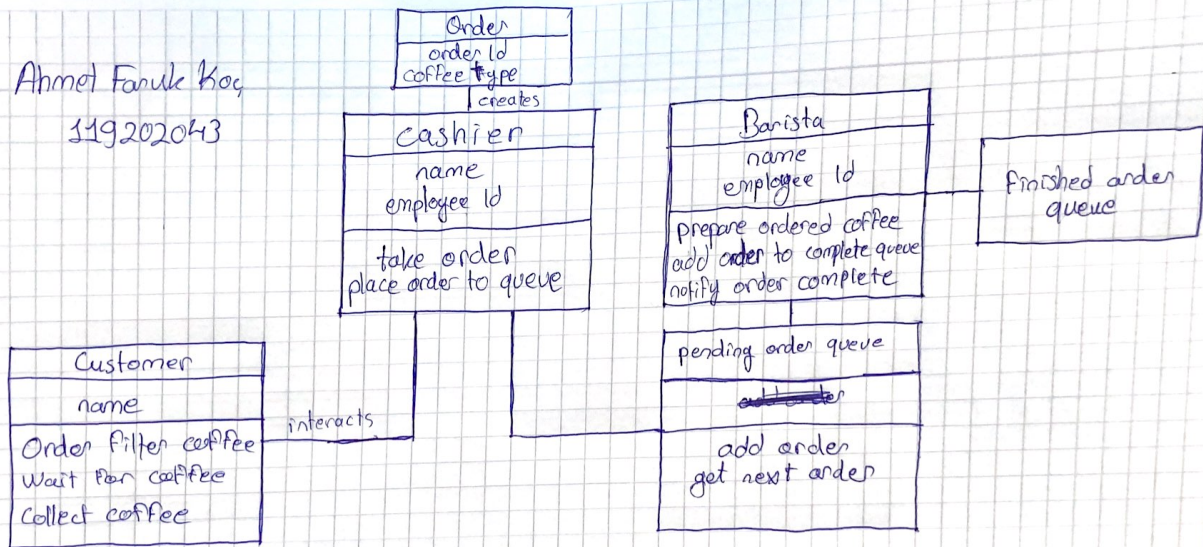 Ahmet Faruk Koç
119202043
Order
order Id
coffee type
creates
cashier
name
employee Id
take order
place order to queue
Barista
name
employee Id
prepare ordered coffee
add order to complete queue
notify order complete
Finished order
queue
pending order queue
add order
get next order
Customer
name
Order filter coffee
Wait for coffee
Collect coffee
interacts